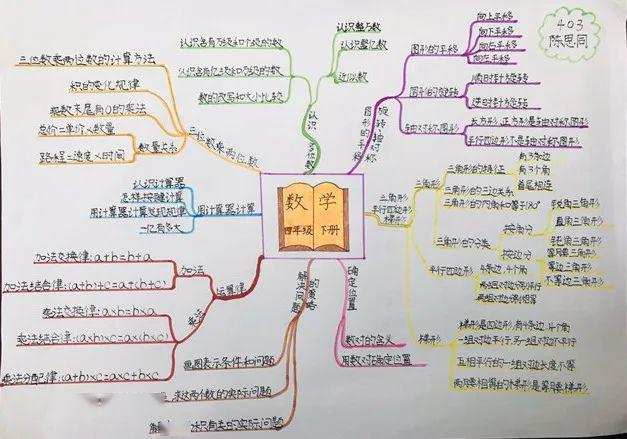 403
陈思同
数学
四年级 下册
三位数乘两位数
三位数乘两位数的计算方法
积的变化规律
乘数末尾有0的乘法
数量关系
总价=单价×数量
路程=速度×时间
用计算器计算
认识计算器
怎样按键计算
用计算器计算发现规律
一亿有多大
运算律
加法
加法交换律:a+b=b+a
加法结合律:(a+b)+c=a+(b+c)
乘法
乘法交换律:a×b=b×a
乘法结合律:(a×b)×c=a×(b×c)
乘法分配律:(a+b)×c=a×c+b×c
解决问题的策略
画图表示条件和问题
求这两个数的实际问题
的实际问题
确定位置
数对的含义
用数对确定位置
认识多位数
认识含有万级和个级的数
认识含有亿级和万级的数
数的改写和大小比较
认识整万数
认识整亿数
近似数
图形的平移
向上平移
向下平移
向右平移
向左平移
图形的旋转
顺时针旋转
逆时针旋转
轴对称图形
长方形,正方形是轴对称图形
平行四边形不是轴对称图形
三角形
平行四边形
梯形
三角形
三角形的特征
有3条边
有3个角
首尾相连
三角形的三边关系
三角形的内角和等于180°
三角形的分类
按角分
锐角三角形
直角三角形
钝角三角形
按边分
等腰三角形
等边三角形
不等边三角形
平行四边形
4条边,4个角
两组对边分别平行
两组对边分别相等
梯形
梯形是四边形,有4条边,4个角
一组对边平行,另一组对边不平行
互相平行的一组对边长度不等
两腰相等的梯形是等腰梯形